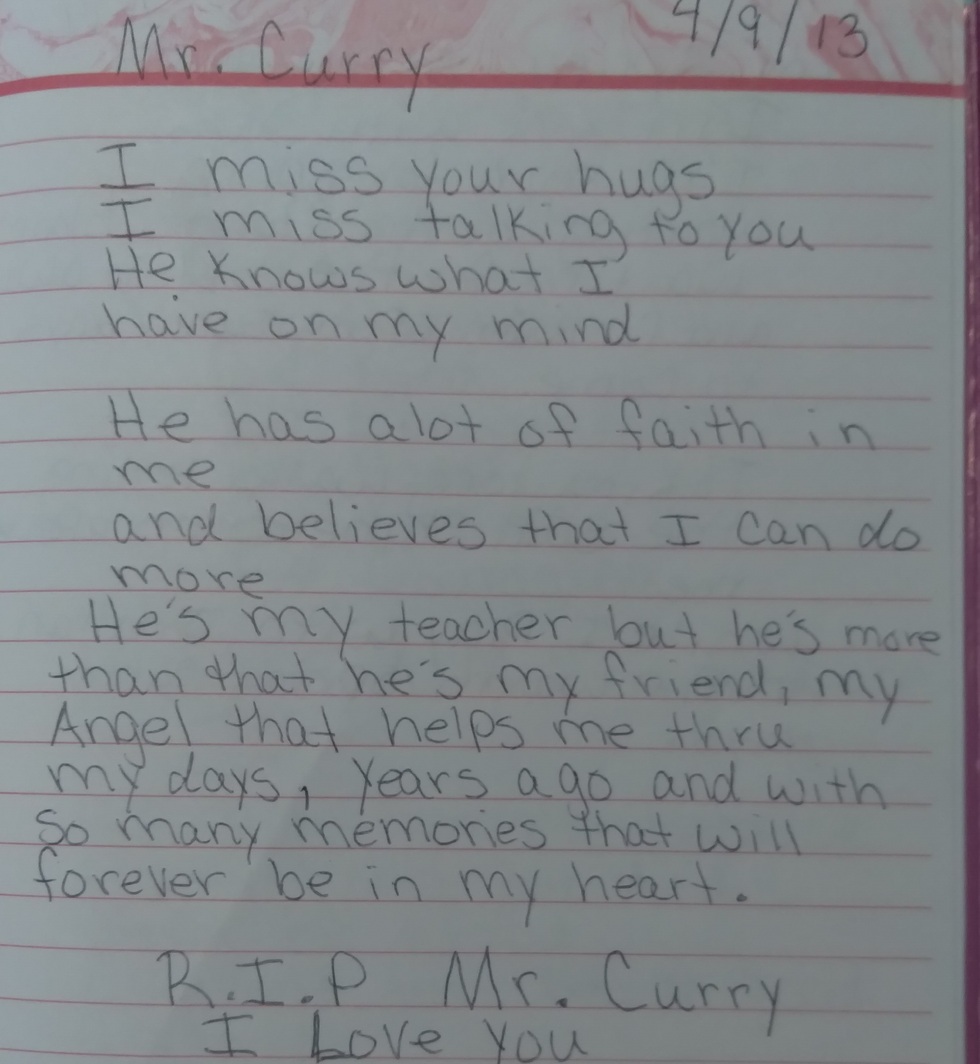 4/9/13
Mr. Curry
I miss your hugs
I miss talking to you
He knows what I
have on my mind
He has alot of faith in
me
and believes that I can do
more
He's my teacher but he's more
than that he's my friend, my
Angel that helps me thru
my days, years ago and with
so many memories that will
forever be in my heart.
R.I.P Mr. Curry
I Love you